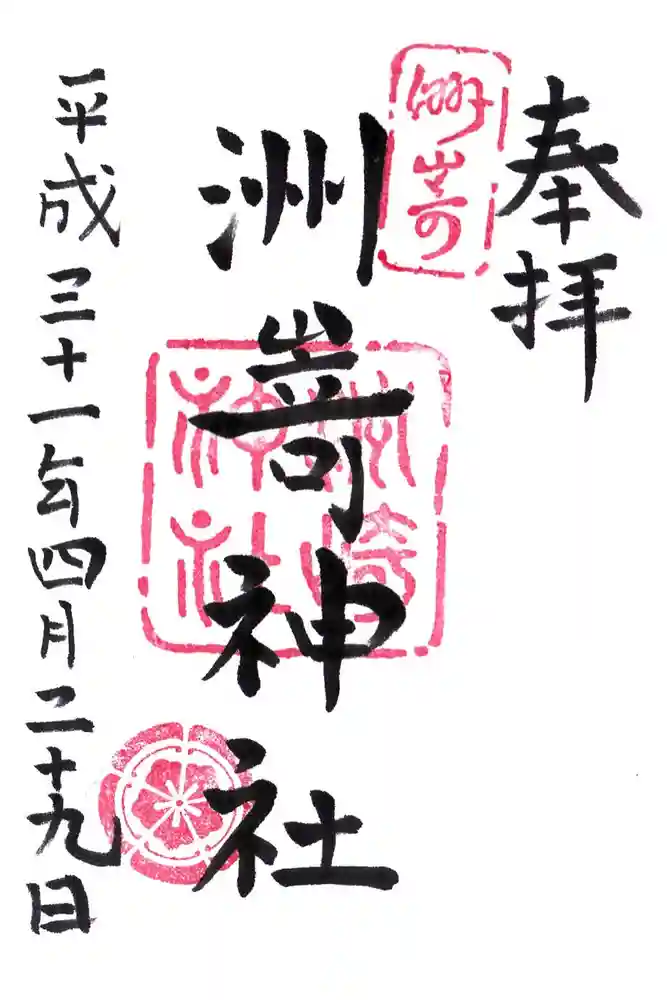 奉拝
洲嵜
洲嵜神社
洲崎神社
平成三十一年四月二十九日